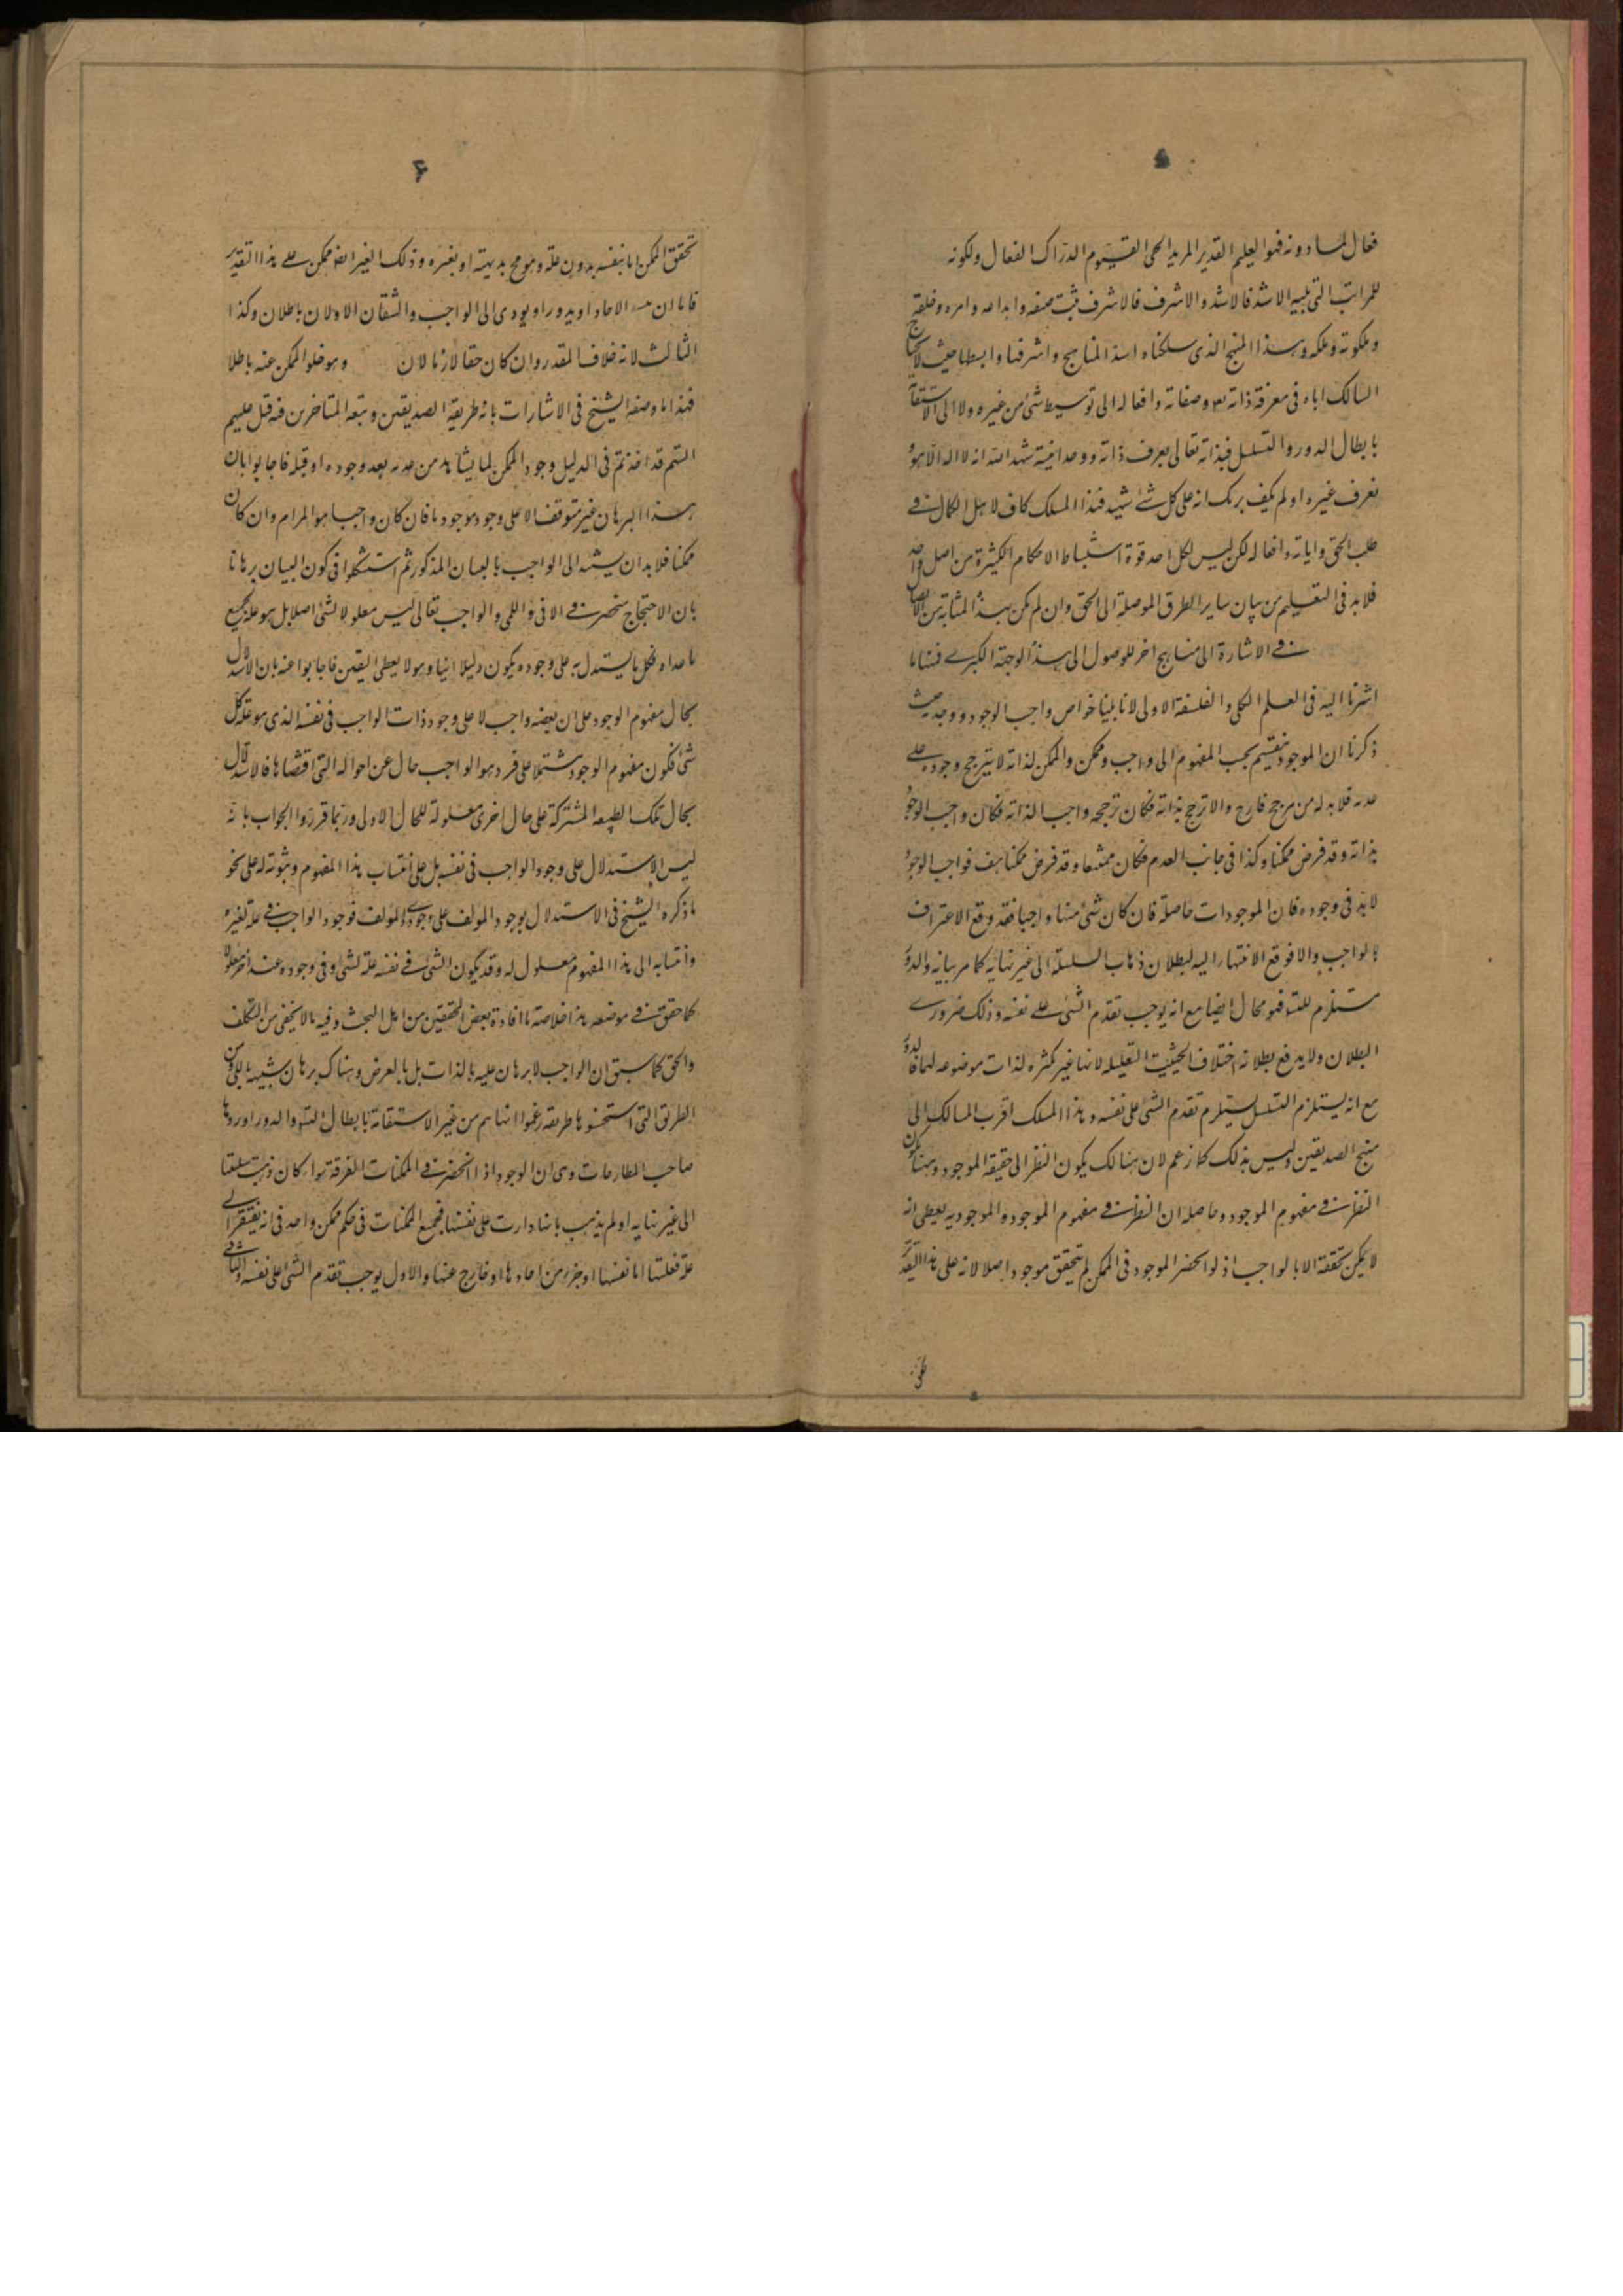 ۵
فعال لما دونه فهو العليم القدير المريد الحى القيوم الدراك الفعال ولكونه
للمراتب التى يليه الاشد فالاشد والاشرف فالاشرف ثبت صنعه وابداعه وامره وخلقه
وملكوته وملكه وهذا المنهج الذى سلكناه اسد المناهج واشرفها وابسطها حيث لا يحتاج
السالك اياه فى معرفة ذاته تعه وصفاته وافعاله الى توسيط شئ من غيره ولا الى الاستعانة
بابطال الدور والتسلسل فبذاته تعالى يعرف ذاته ووحدانيته شهد الله انه لا اله الا هو
يعرف غيره اولم يكف بربك انه على كل شئ شهيد فهذا المسلك كاف لاهل الكمال فے
طلب الحق واياته وافعاله لكن ليس لكل احد قوة استنباط الاحكام الكثيرة من اصل واحد
فلابد فى التعليم من بيان ساير الطرق الموصلة الى الحق وان لم يكن بهذه المثابة من الايصال
فے الاشارة الى مناهج اخر للوصول الى هذه الوجهة الكبرے فمنها ما
اشرنا اليه فى العلم الكلى والفلسفة الاولى لانا بينا خواص واجب الوجود ووحدته حيث
ذكرنا ان الموجود ينقسم بحسب المفهوم الى واجب وممكن والممكن لذاته لا يترجح وجوده علے
عدمه فلابد له من مرجح خارج والا ترجح بذاته فكان ترجحه واجب الذاته فكان واجب الوجود
بذاته وقد فرض ممكنا وكذا فى جانب العدم فكان ممتنعا وقد فرض ممكنا هف فواجب الوجود
لابد فى وجوده فان الموجودات حاصلة فان كان شئ منها واجبا فقد وقع الاعتراف
بالواجب والا فوقع الانتهاء اليه لبطلان ذهاب السلسلة الى غير نهاية كما مر بيانه والدور
مستلزم للتسه فهو محال ايضا مع انه يوجب تقدم الشئ علے نفسه وذلك ضرورے
البطلان ولا يدفع بطلانه اختلاف الحيثيت التعليله لانها غير مكثره لذات موضوعه لهما فالدور
مع انه يستلزم التسلسل يستلزم تقدم الشئ على نفسه وهذا المسلك اقرب المسالك الى
منهج الصديقين وليس بذلك كما زعم لان هنالك يكون النظر الى حقيقة الموجود وههنا يكون
النظر فے مفهوم الموجود وحاصله ان النظر فے مفهوم الموجود والموجوديه يعطى انه
لا يمكن تحققه الا بالواجب اذ لو انحصر الموجود فى الممكن لم يتحقق موجود اصلا لانه على هذا التقدير
۶
تحقق الممكن اما بنفسه بدون علة وهو مح بديهته او بغيره وذلك الغير ايضا ممكن علے هذا التقدير
فاما ان الاحاد او يدور او يودى الى الواجب والشقان الاولان باطلان وكذا
الثالث لانه خلاف المقدر وان كان حقا لازما لان وهو خلو الممكن عنه باطلا
فهذا ما وصفه الشيخ فى الاشارات بانه طريقة الصديقين وتبعه المتاخرين فيه قيل عليهم
الستم قد اخذتم فى الدليل وجود الممكن لما يشاهد من عدمه بعد وجوده او قبله فاجابوا بان
هذا البرهان غير متوقف الا على وجود موجود ما فان كان واجبا هو المرام وان كان
ممكنا فلابد ان يستند الى الواجب بالبيان المذكور ثم استشكلوا فى كون البيان برهانا
بان الاحتجاج منحصر فے الانى واللمى والواجب تعالى ليس معلولا لشئ اصلا بل هو علة لجميع
ما عداه فكل ما يستدل به على وجوده يكون دليلا انيا وهو لا يعطى اليقين فاجابوا عنه بان الاستدلال
بحال مفهوم الوجود على ان بعضه واجب لا على وجود ذات الواجب فى نفسه الذى هو علة كل
شئ فكون مفهوم الوجود مشتملا على فرد هو الواجب حال عن احواله التى اقتضاها فالاستدلال
بحال تلك الطبيعه المشتركة على حال اخرى معلولة للحال الاولى وربما قرروا الجواب بانه
ليس الاستدلال على وجود الواجب فى نفسه بل على انتساب هذا المفهوم وثبوته له على نحو
ما ذكره الشيخ فى الاستدلال بوجود المولف على وجود ذى المولف فوجود الواجب فے علة لغيره
وانتسابه الى هذا المفهوم معلول له وقد يكون الشئ فے نفسه علة لشئ وفى وجوده عند اخر معلولا
كما حقق فے موضعه هذا خلاصة ما افاده بعض المحققين من اهل البحث وفيه ما لا يخفى من التكلف
والحق كما سبق ان الواجب لا برهان عليه بالذات بل بالعرض وهناك برهان شبيه باللمى ومن
الطريق التى استحسنوها طريقه زعموا انها تم من غير الاستعانة بابطال التسه والدور اوردها
صاحب المطارحات وهى ان الوجود اذا انحصر فے الممكنات الفرقة سواء كان ذهبت سلسلتها
الى غير نهايه او لم يذهب بانها دارت على نفسها فجميع الممكنات فى حكم ممكن واحد فى انه يفتقر الى
علة فعلتها اما نفسها او جزء من احادها او خارج عنها والاول يوجب تقدم الشئ على نفسه والثانے